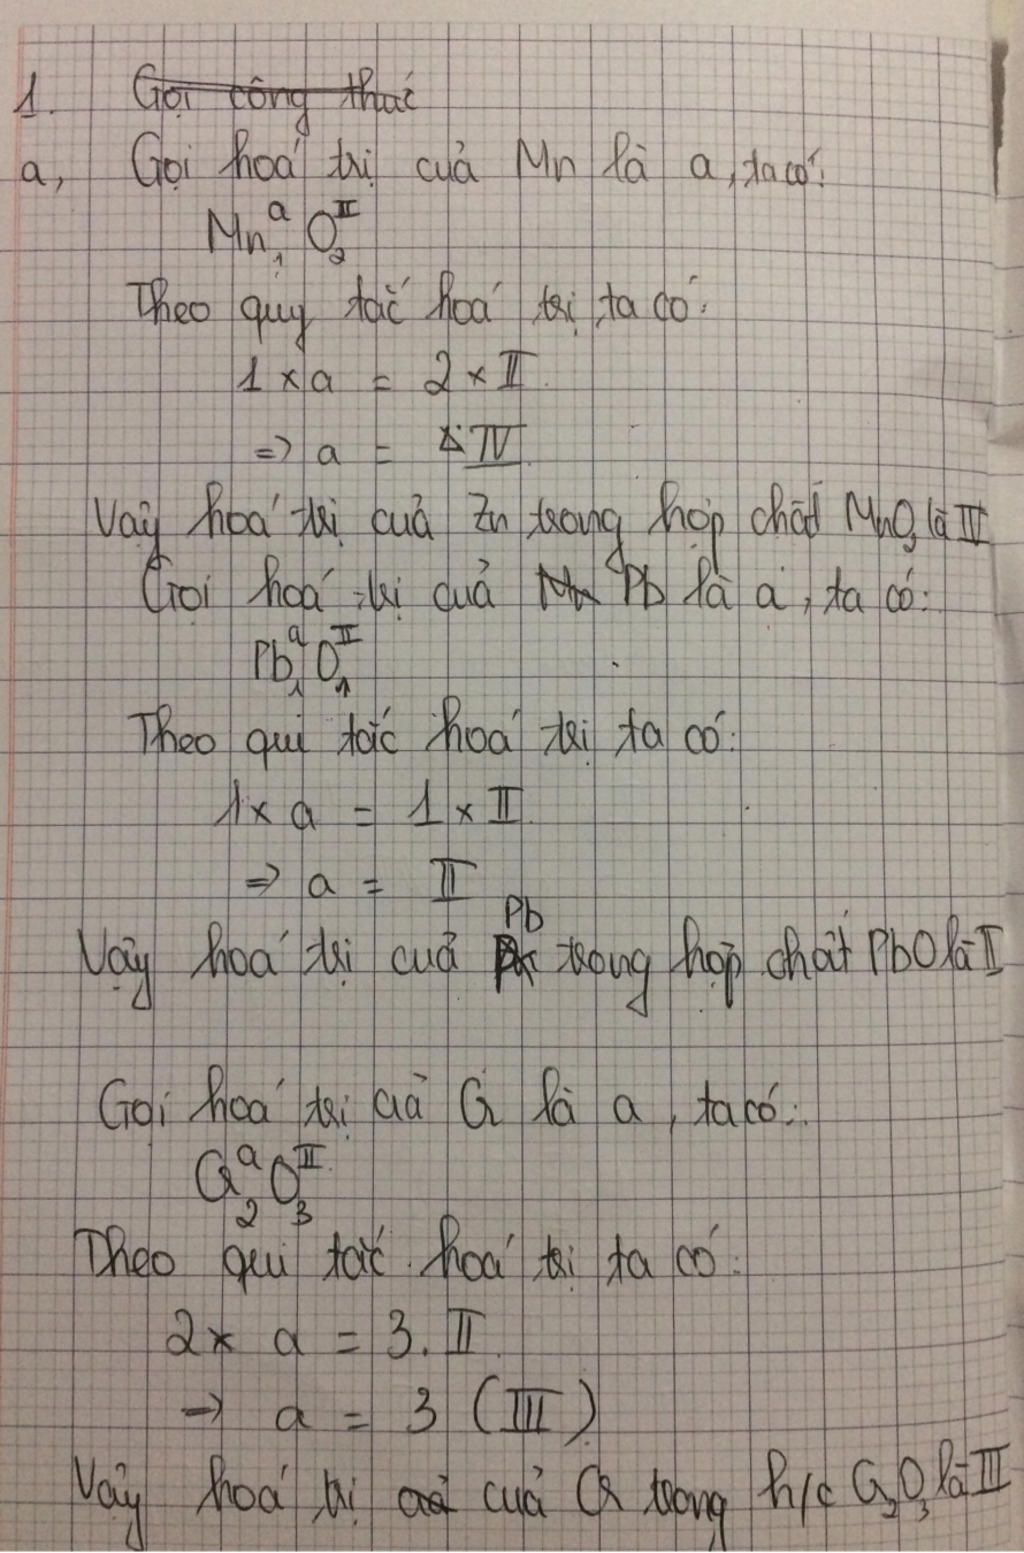 1. Gọi công thức
a, Gọi hoá trị của Mn là a, ta có:
Mn₁ᵃ O₂ᴵᴵ
Theo quy tắc hoá trị ta có:
1 × a = 2 × II
=> a = IV
Vậy hoá trị của Zn trong hợp chất MnO₂ là IV
Gọi hoá trị của Pb là a, ta có:
Pb₁ᵃ O₁ᴵᴵ
Theo qui tắc hoá trị ta có:
1 × a = 1 × II
=> a = II
Vậy hoá trị của Pb trong hợp chất PbO là II
Gọi hoá trị của Cr là a, ta có:
Cr₂ᵃ O₃ᴵᴵ
Theo qui tắc hoá trị ta có:
2 × a = 3. II
-> a = 3 (III)
Vậy hoá trị của Cr trong h/c Cr₂O₃ là III